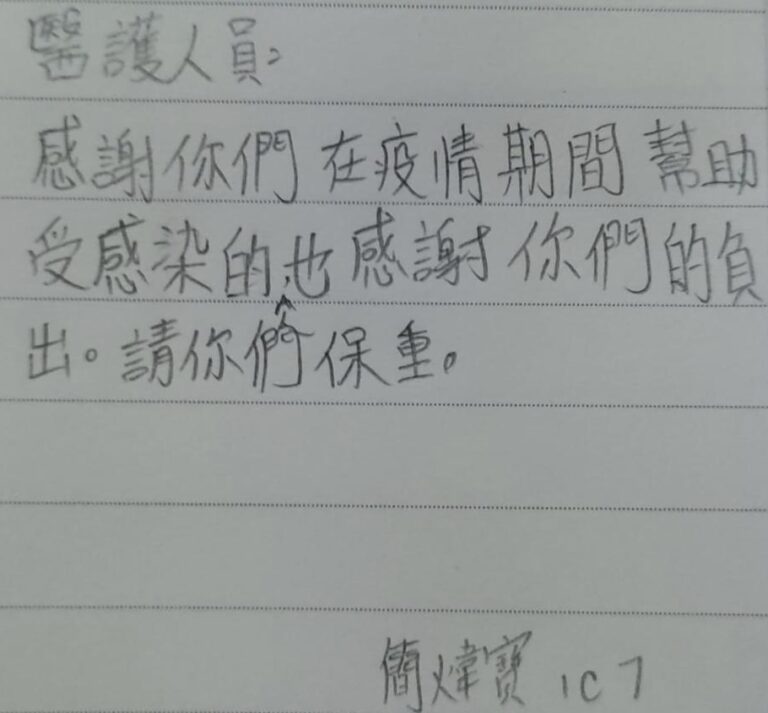 醫護人員：
感謝你們在疫情期間幫助
受感染的人，也感謝你們的負
出。請你們保重。
簡煒寶 1C 7